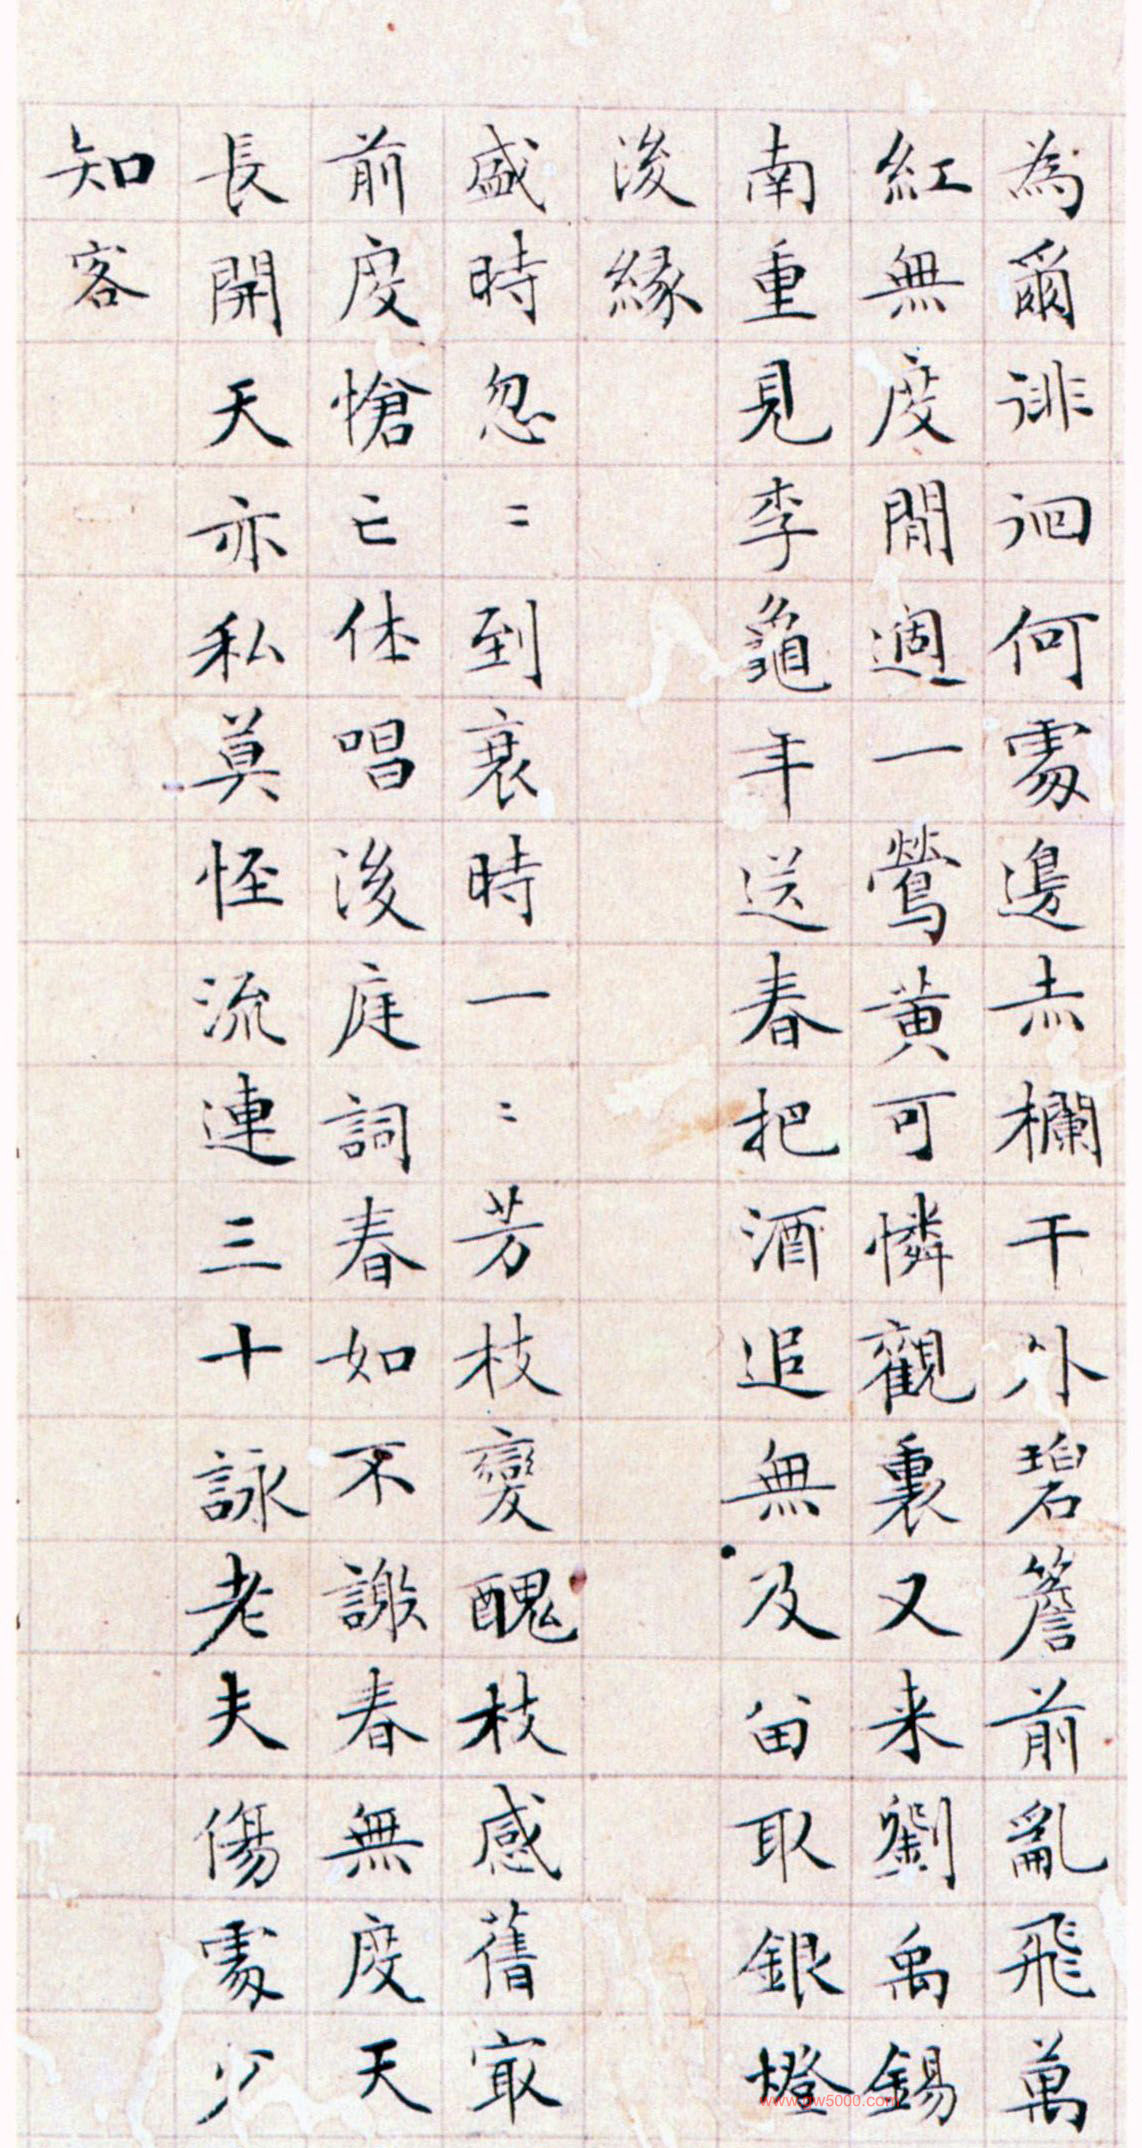 為爾徘徊何處邊赤欄干外碧簷前亂飛萬
紅無度閒遍一鶯黄可憐觀裏又来劉禹錫
南重見李龜年送春把酒追無及留取銀燈
後緣
盛時忽〻到衰時一〻芳枝變醜枝感舊最
前度愴亡休唱後庭詞春如不謝春無度天
長開天亦私莫怪流連三十詠老夫傷處少
知客
www.yw5000.com